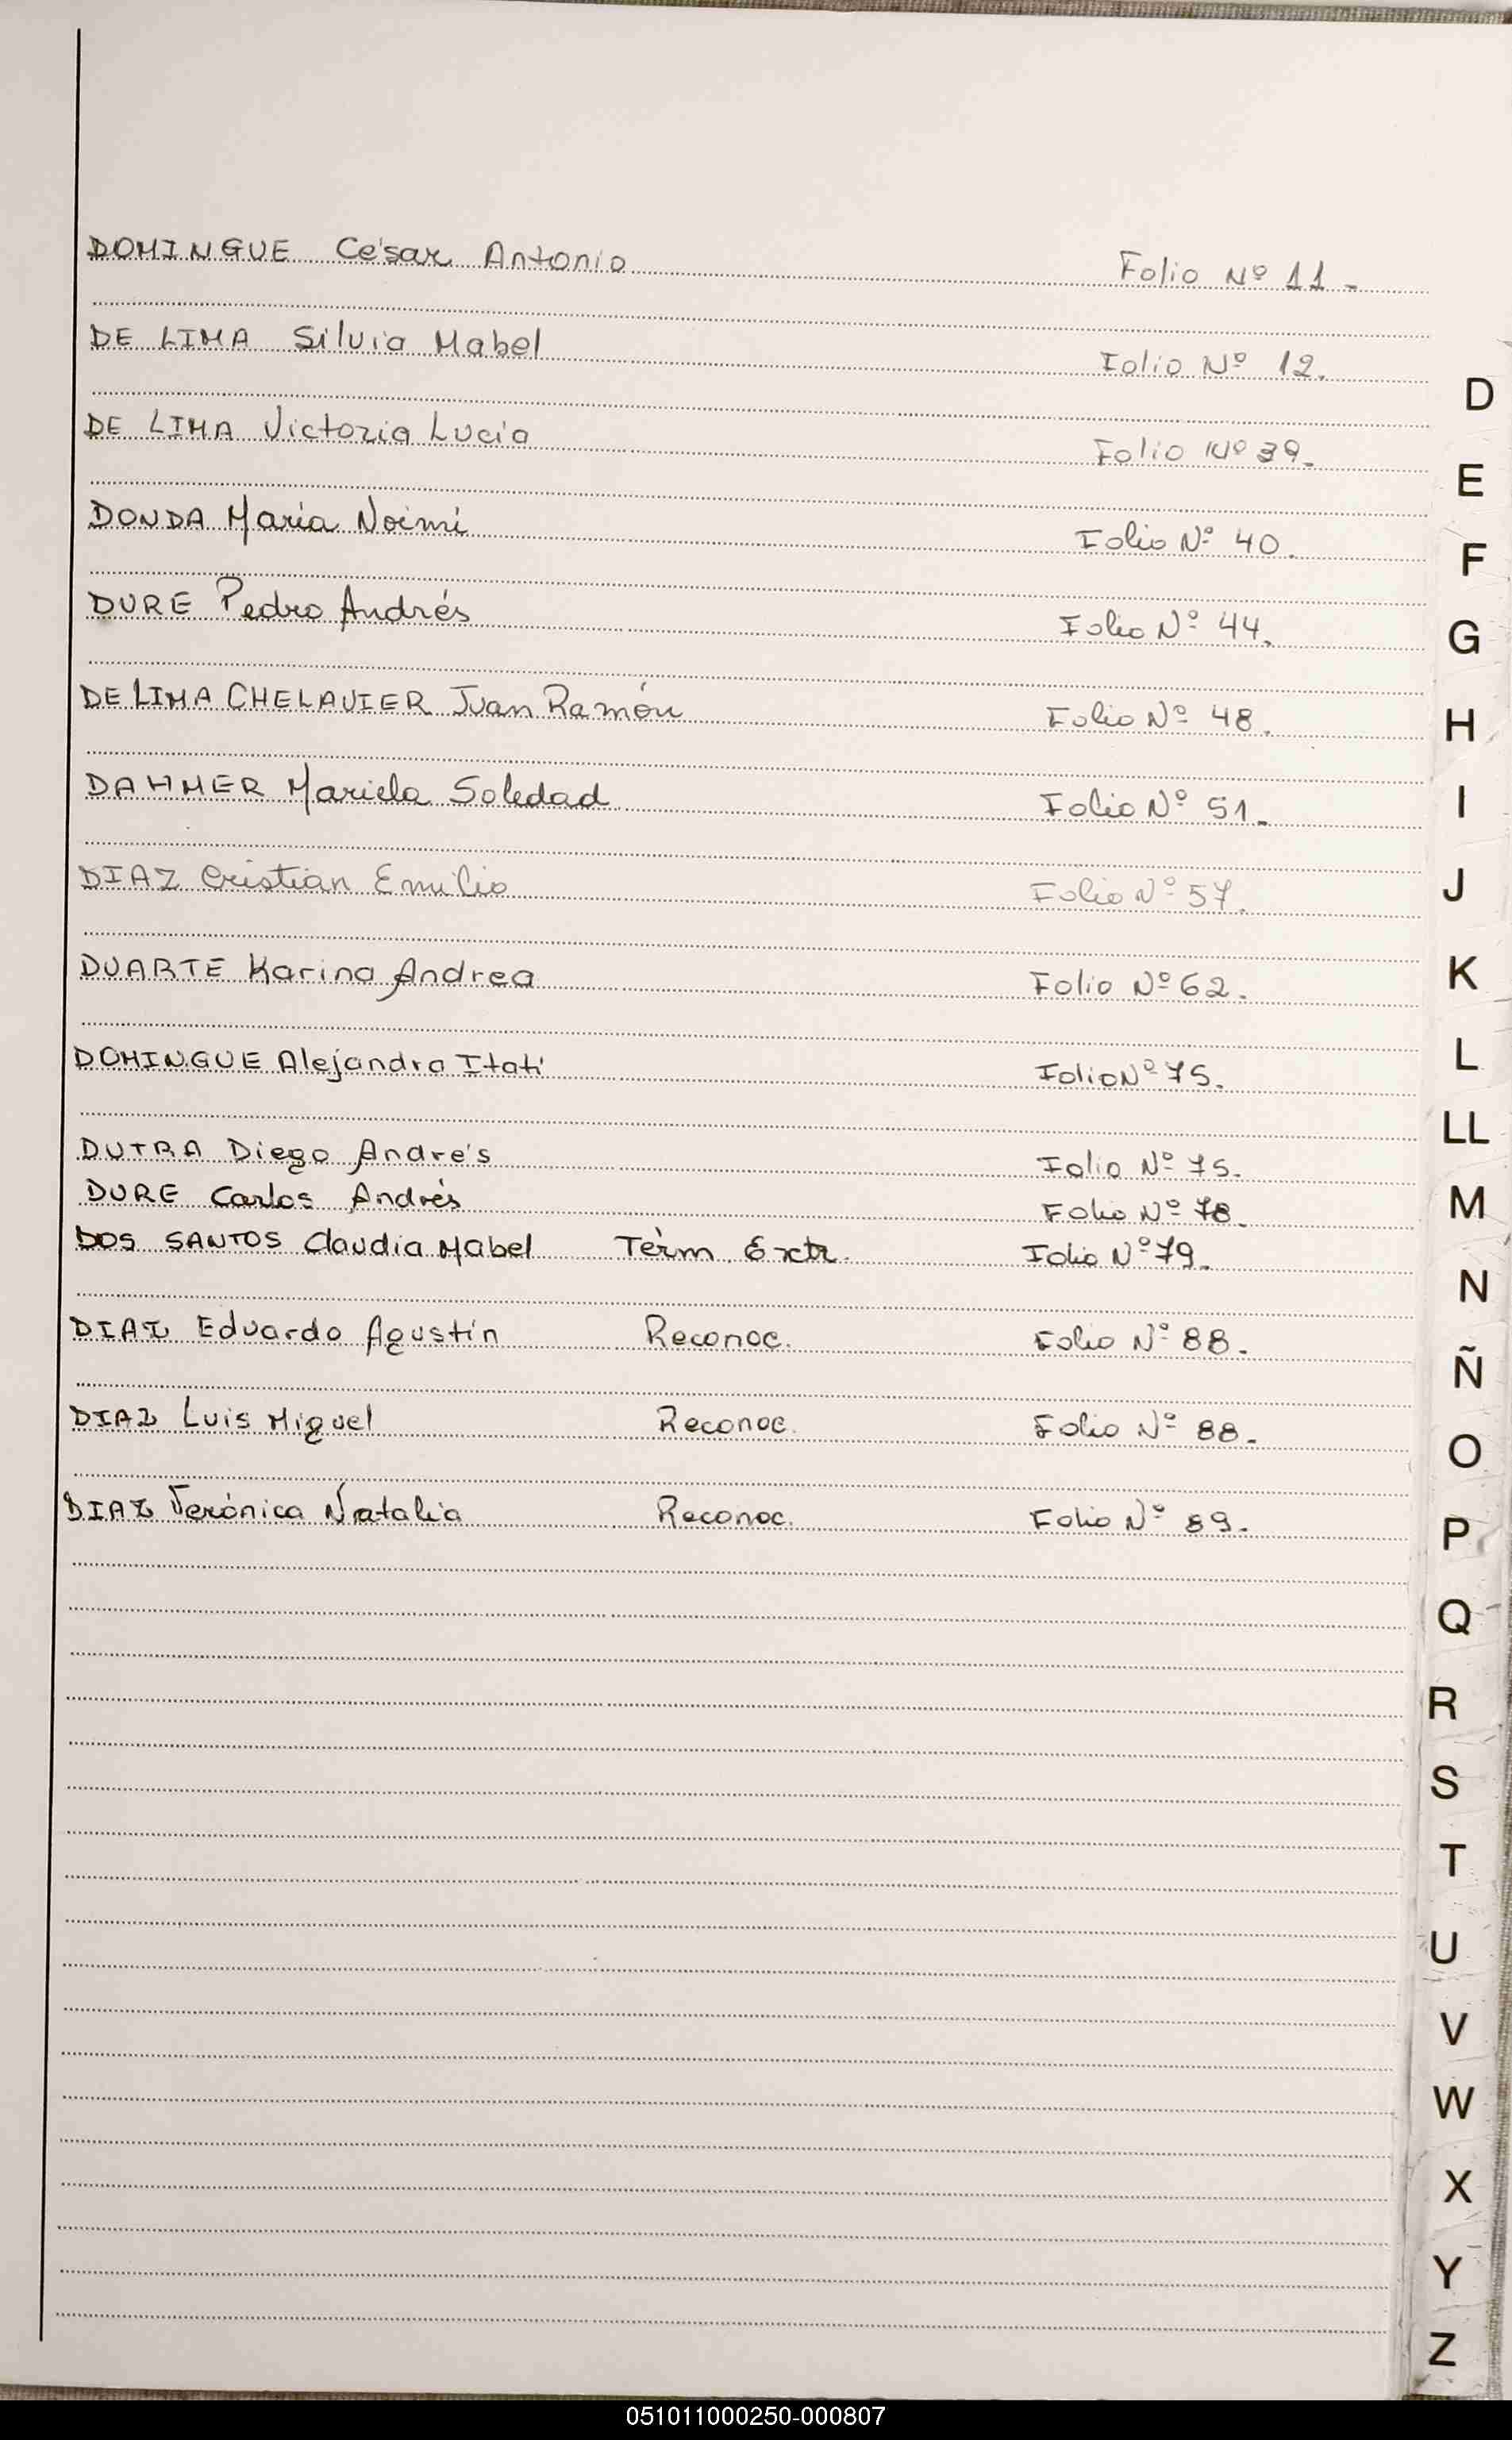 DOMINGUE César Antonio Folio Nº 11 -
DE LIMA Silvia Mabel Folio Nº 12.
DE LIMA Victoria Lucia Folio Nº 39.
DONDA Maria Noimi Folio Nº 40.
DURE Pedro Andrés Folio Nº 44.
DE LIMA CHELAVIER Juan Ramón Folio Nº 48.
DAHMER Mariela Soledad Folio Nº 51.
DIAZ Cristian Emilio Folio Nº 57.
DUARTE Karina Andrea Folio Nº 62.
DOMINGUE Alejandra Itatí Folio Nº 75.
DUTRA Diego Andrés Folio Nº 75.
DURE Carlos Andrés Folio Nº 78.
DOS SANTOS Claudia Mabel Térm. Extr. Folio Nº 79.
DIAZ Eduardo Agustín Reconoc. Folio Nº 88.
DIAZ Luis Miguel Reconoc. Folio Nº 88.
DIAZ Verónica Natalia Reconoc. Folio Nº 89.
D
E
F
G
H
I
J
K
L
LL
M
N
Ñ
O
P
Q
R
S
T
U
V
W
X
Y
Z
051011000250-000807